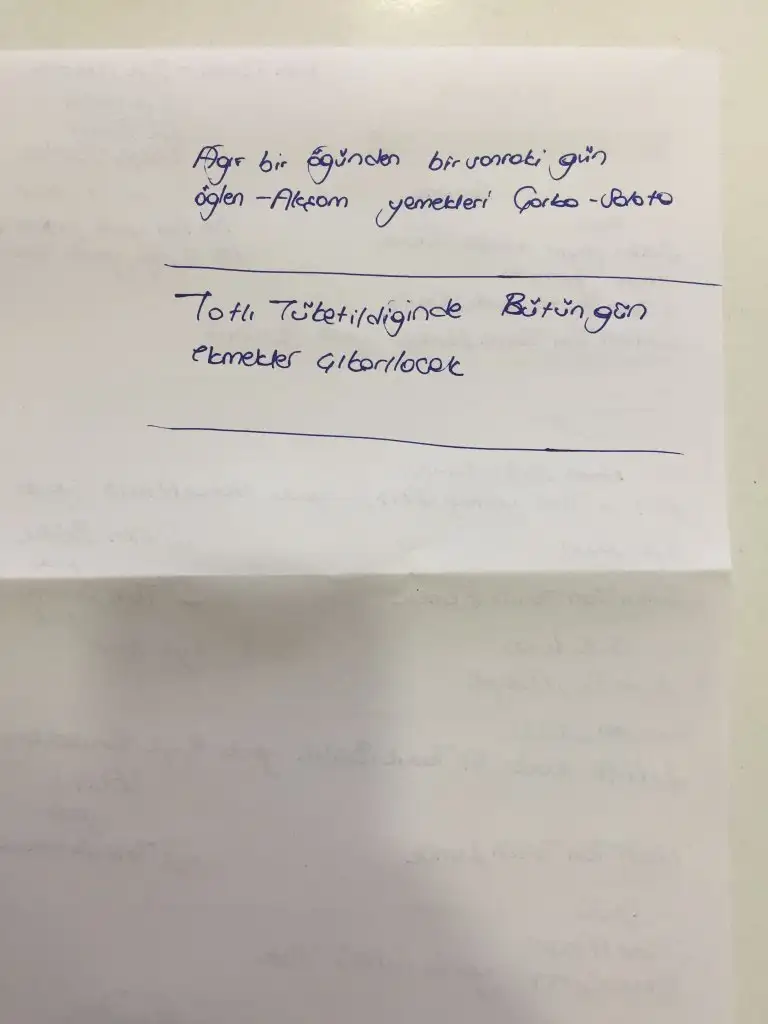 Ağır bir öğünden bir sonraki gün
öğlen - Akşam yemekleri Çorba - Salata
Tatlı Tüketildiğinde Bütün gün
ekmekler çıkarılacak